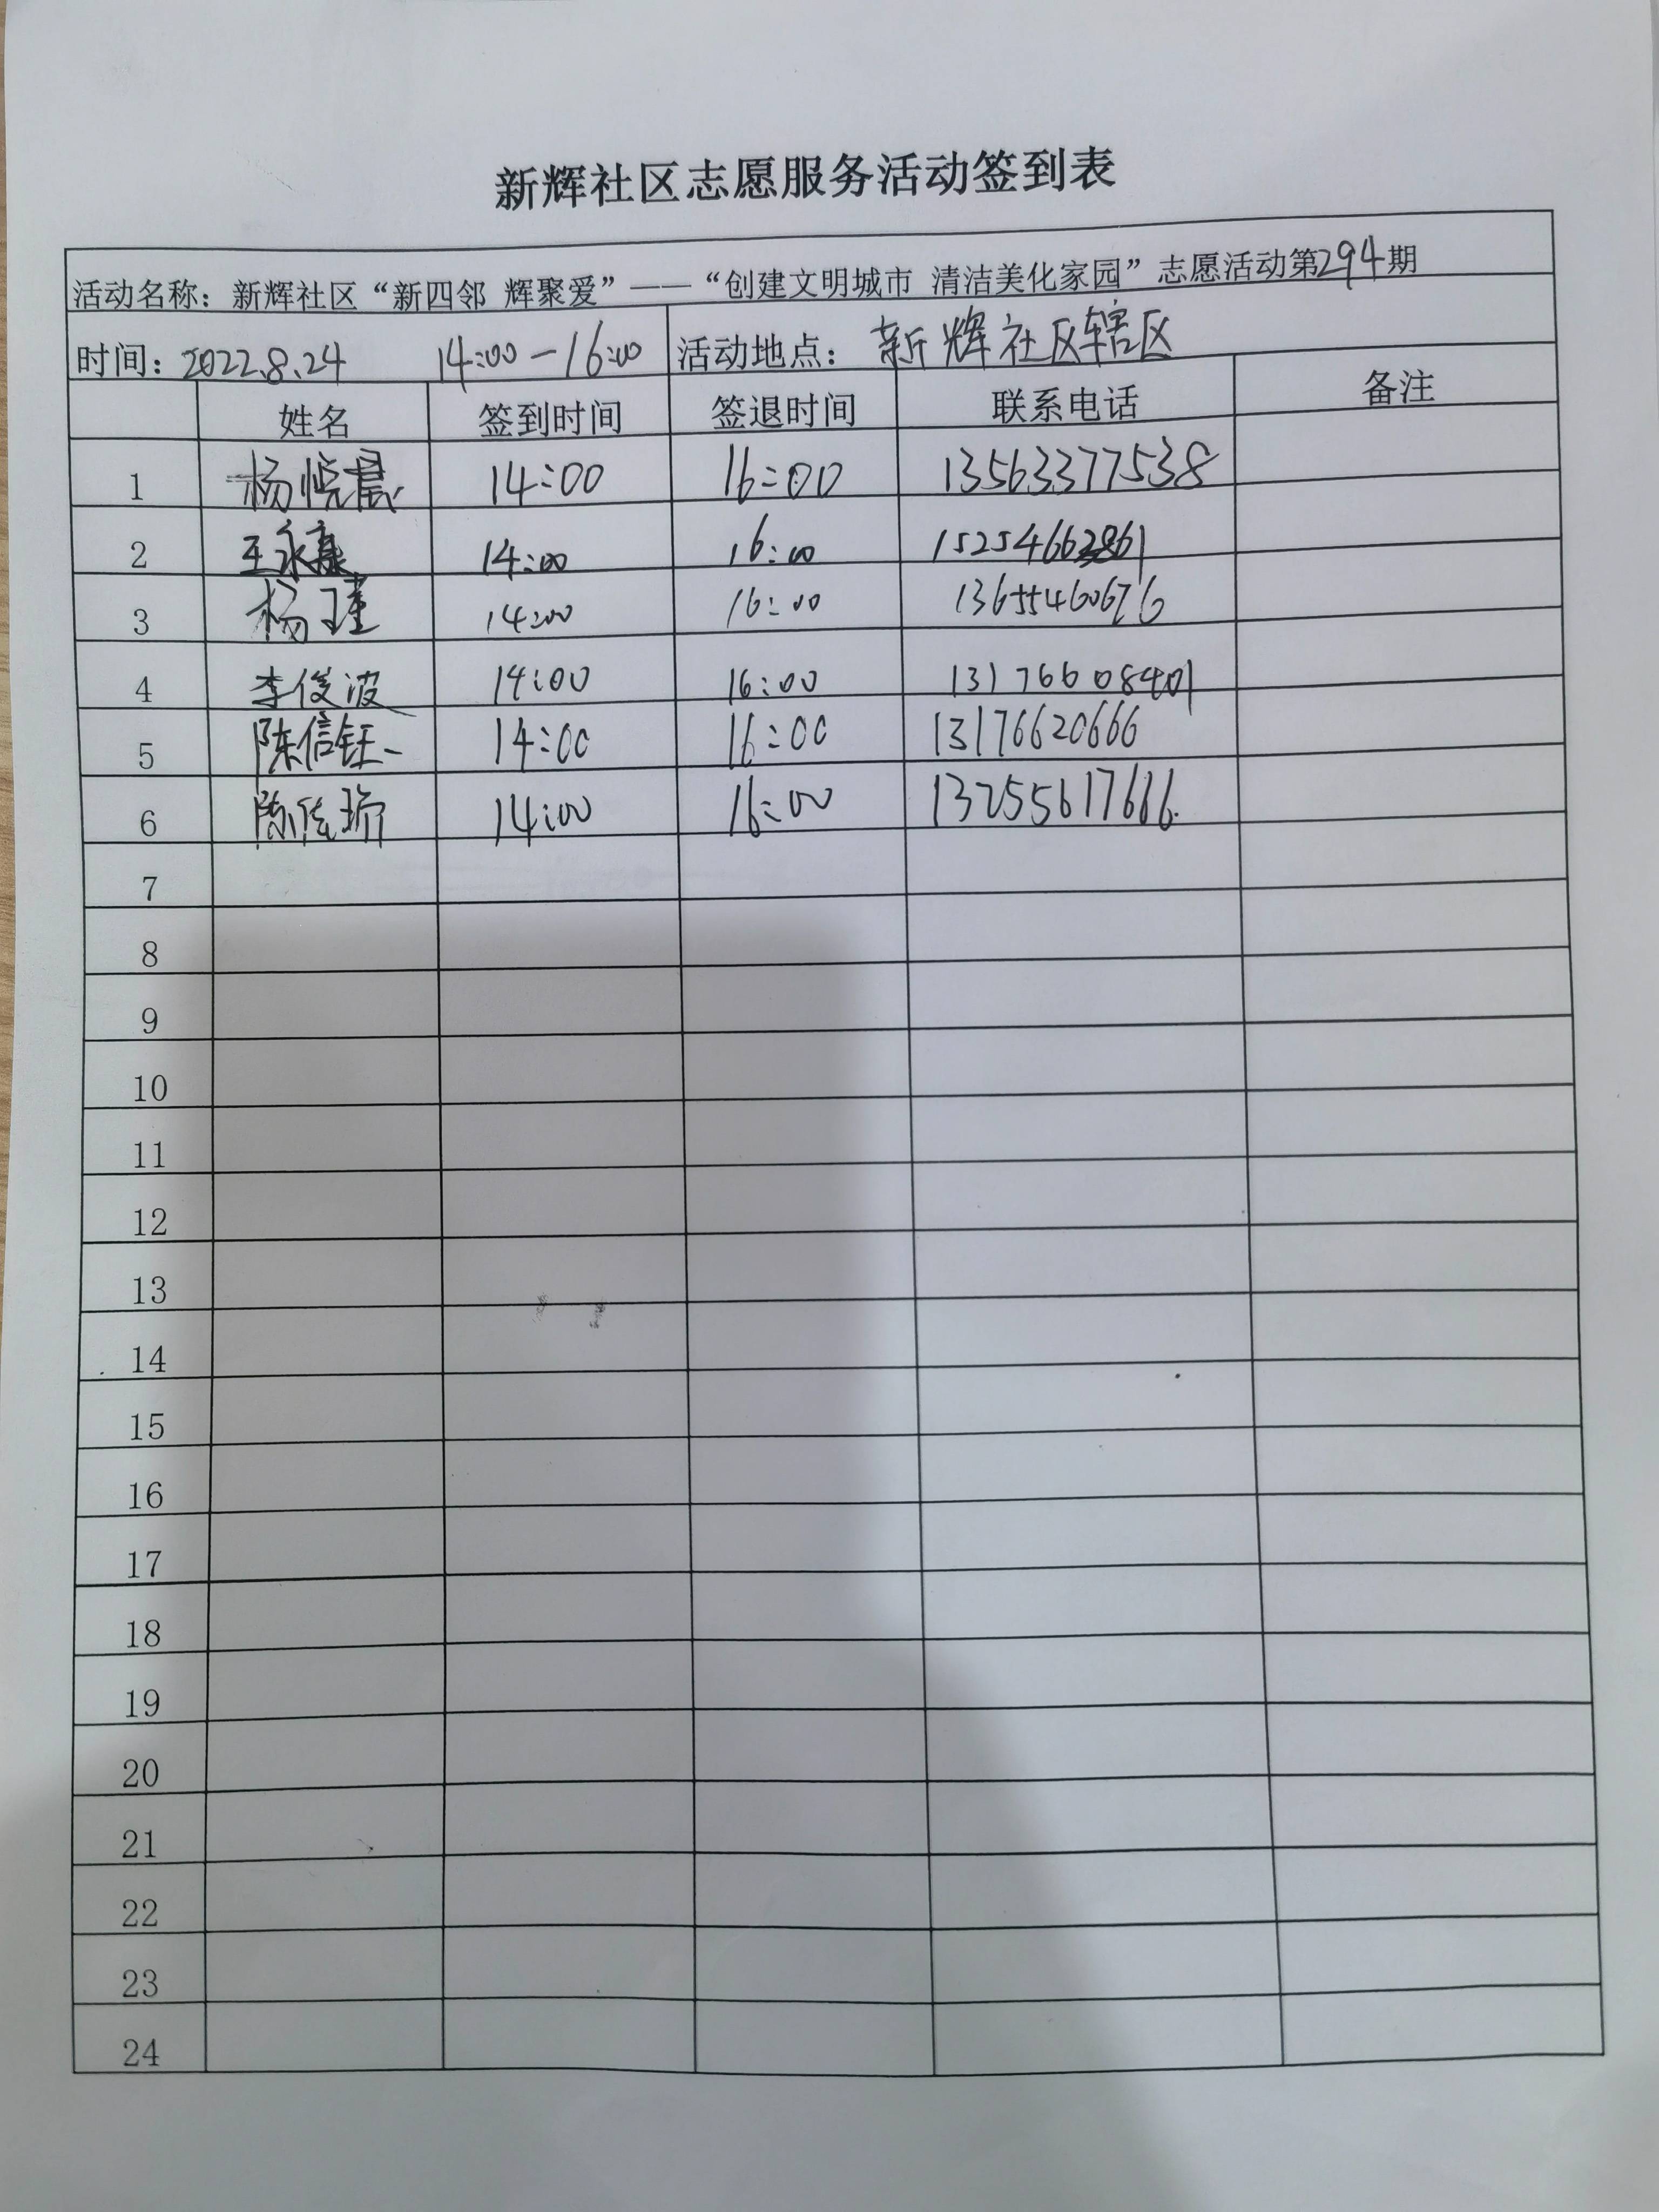 新辉社区志愿服务活动签到表
活动名称：新辉社区“新四邻 辉聚爱”——“创建文明城市 清洁美化家园”志愿活动第294期
时间：2022.8.24 14:00-16:00 活动地点：新辉社区辖区
姓名 签到时间 签退时间 联系电话 备注
1 杨悦晨 14:00 16:00 13563377538
2 王永康 14:00 16:00
3 杨瑾 14:00 16:00 13655460676
4 李俊波 14:00 16:00 13176608401
5 陈信钰 14:00 16:00 13176620666
6 陈信瑜 14:00 16:00 13255617666
7
8
9
10
11
12
13
14
15
16
17
18
19
20
21
22
23
24